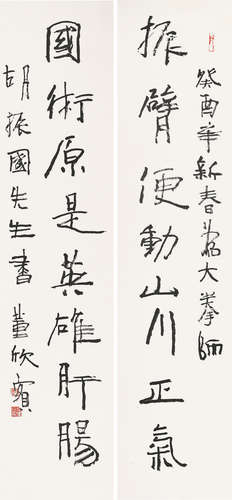 癸酉年新春為大拳師
振臂便動山川正氣
國術原是英雄肝腸
胡振國先生書 董欣賓